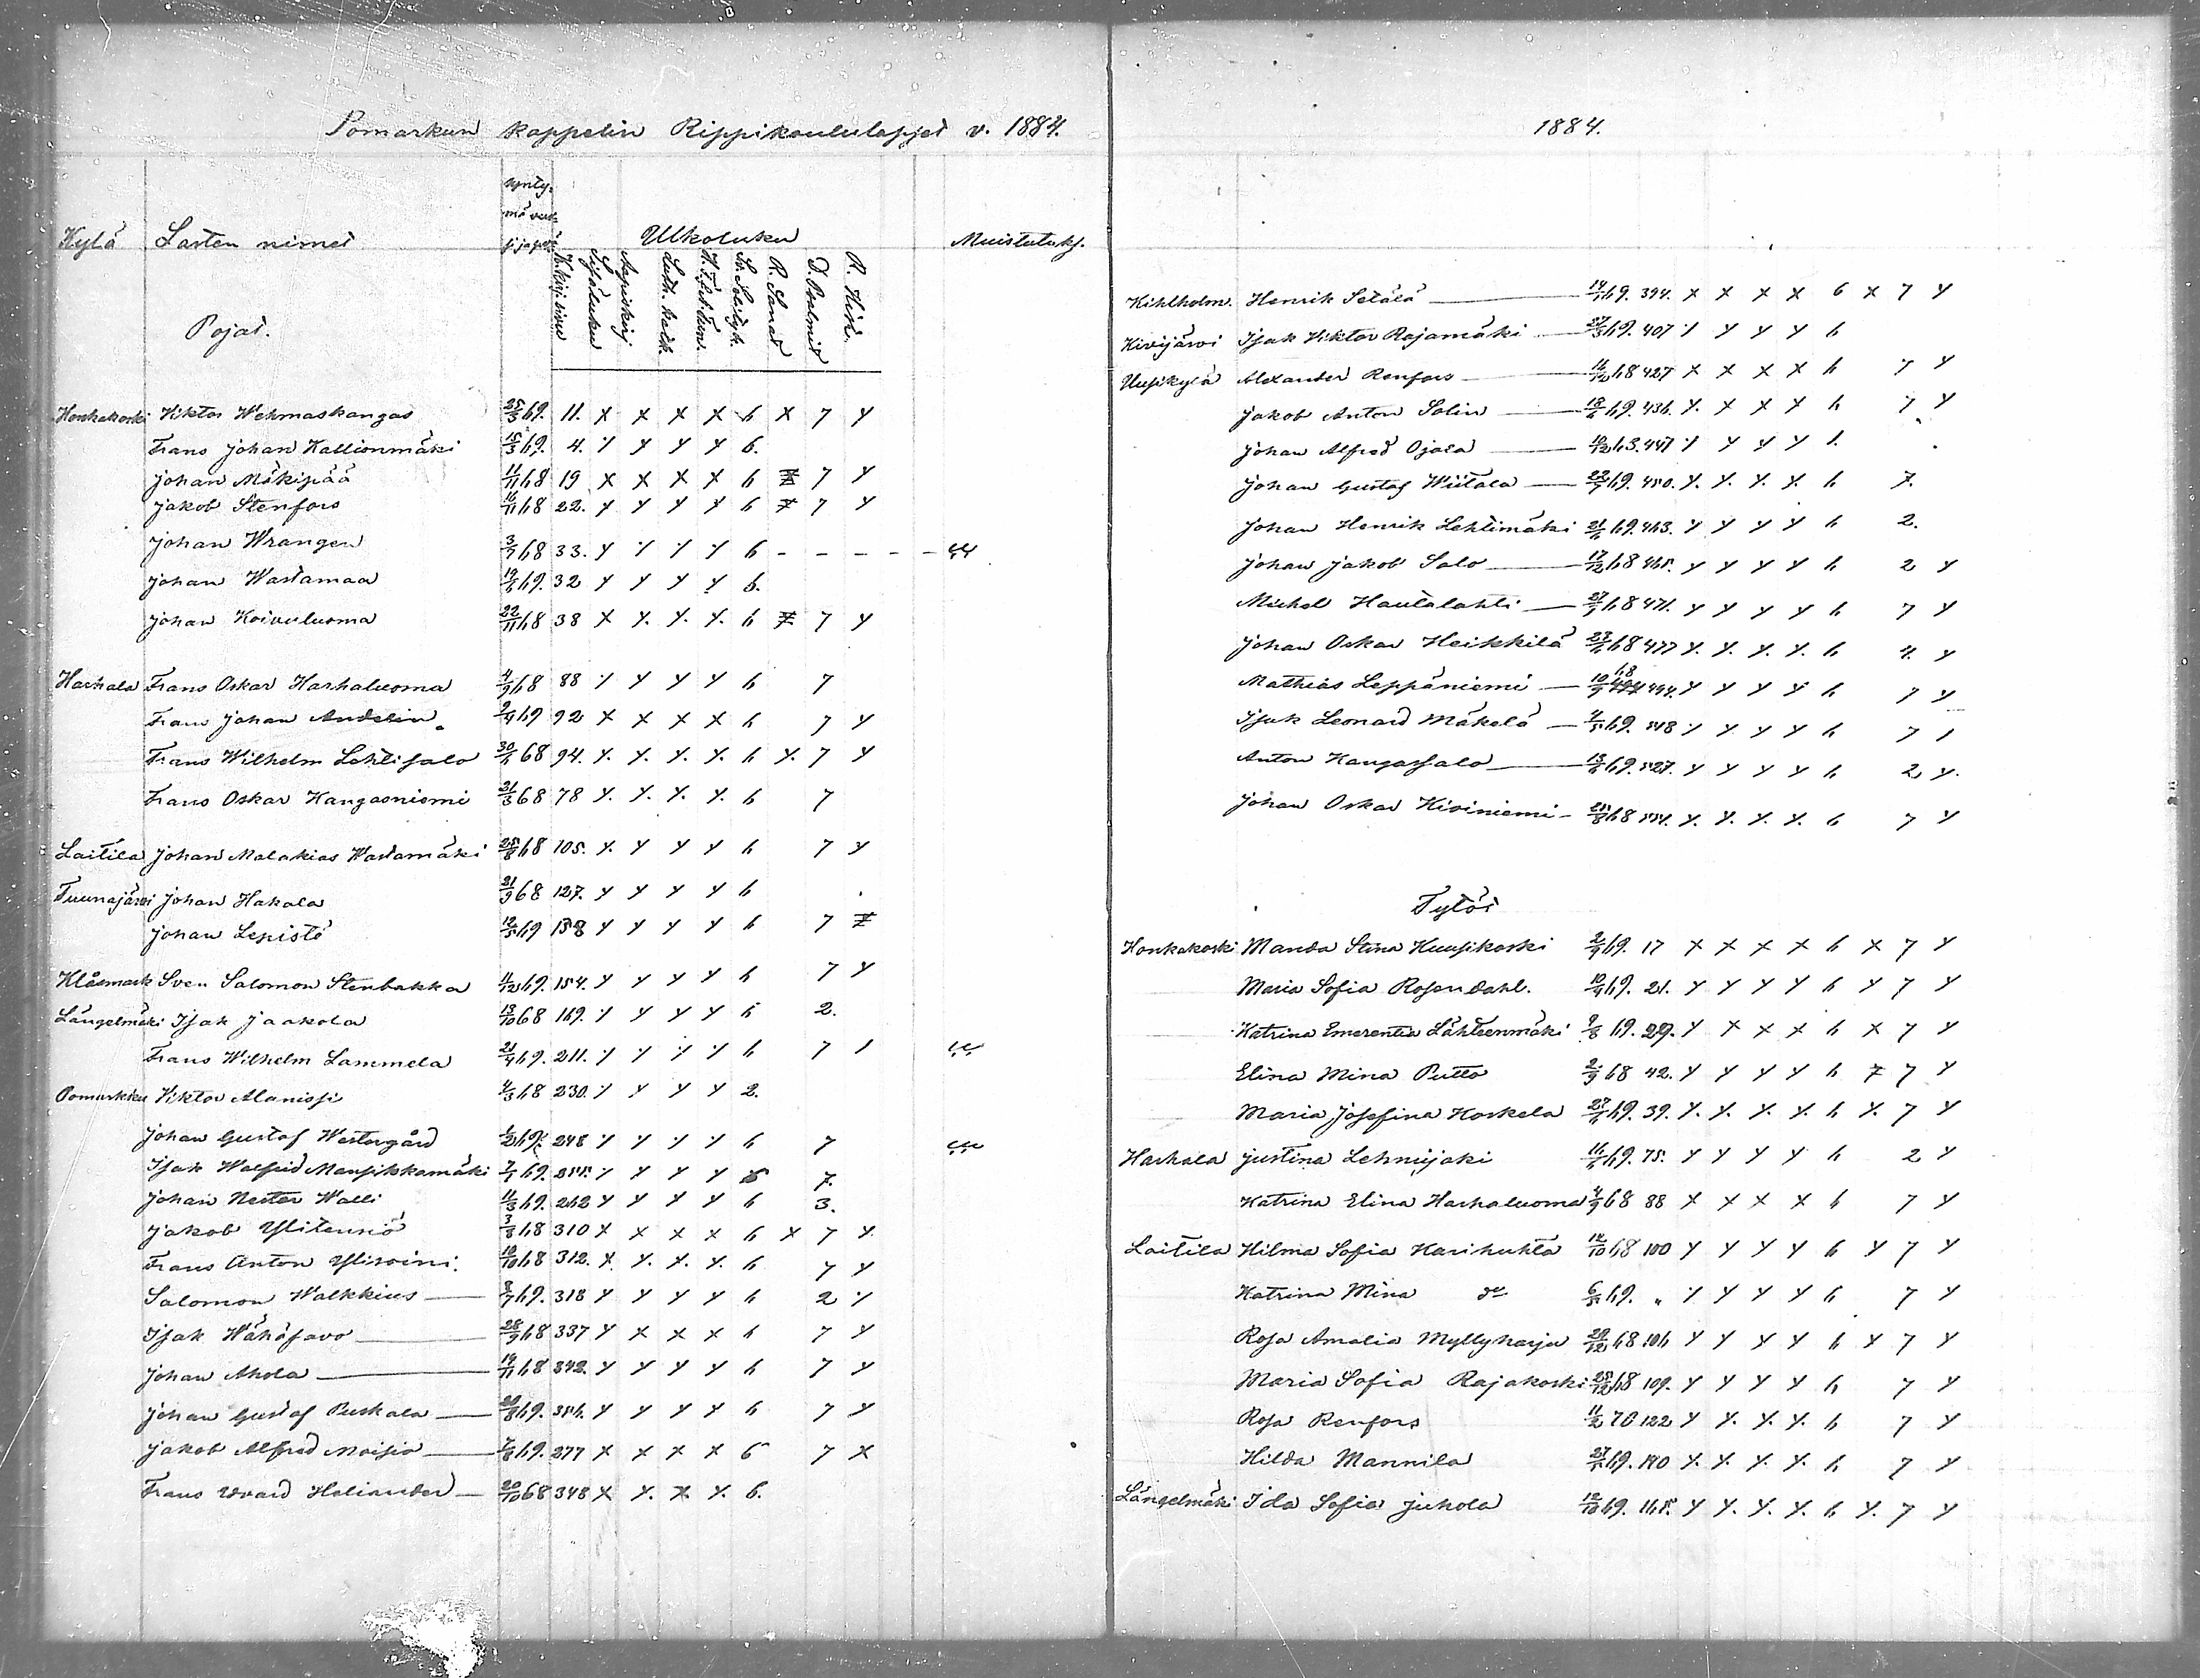 Pomarkun kappelin Rippikoululapset v. 1884.
Kylä Lasten nimet Ulkoluku Muistutuks.
Pojat.
Honkakoski Viktor Wehmaskangas 25/3 69. 11. x x x x 6 x 7 y
Frans Johan Kallionmäki 15/3 69. 4. y y y y 6.
Johan Mäkipää 11/11 68 19 x x x x 6 7 y
Jakob Stenfors 16/11 68 22. y y y y 6 7 y
Johan Wrangen 3/7 68 33. y y y y 6 - - - - -
Johan Wastamaa 19/6 69. 32 y y y y 6.
Johan Koivuluoma 22/11 68 38 x y. y. y. 6 7 y
Harhala Frans Oskar Harhaluoma 4/9 68 88 y y y y 6 7
Frans Johan Andelin 2/4 69 92 x x x x 6 7 y
Frans Wilhelm Lehtisalo 30/6 68 94. y. y. y. y. 6 y. 7 y
Frans Oskar Kangasniemi 31/3 68 78 y. y. y. y. 6 7
Laitila Johan Malakias Wastamäki 25/8 68 105. y. y y y 6 7 y
Tuunajärvi Johan Hakala 21/9 68 127. y y y y 6
Johan Lepistö 12/5 69 158 y y y y 6 7
Klåsmark Sven Salomon Stenbakka 11/12 69. 154. y y y y 6 7 y
Längelmäki Isak Jaakola 13/10 68 169. y y y y 6 2.
Frans Wilhelm Lammela 21/4 69. 211. y y y y 6 7 1
Pomarkku Viktor Alanissi 4/3 68 230. y y y y 2.
Johan Gustaf Westergård 1/2 69. 248 y y y y 6 7
Isak Walfrid Mansikkamäki 7/1 69. 255. y y y y 6 7.
Johan Nestor Walli 11/3 69. 262 y y y y 6 3.
Jakob Ylitennö 3/8 68 310 x x x x 6 x 7 y.
Frans Anton Yliroini. 10/10 68 312. x y. y. y. 6 7 y
Salomon Walkkius 8/7 69. 318 y y y y 6 2 y
Isak Wähäsavo 28/9 68 337 y x x x 6 7 y
Johan Ahola 14/11 68 342. y y y y 6 7 y
Johan Gustaf Puskala 20/8 69. 356. y y y y 6 7 y
Jakob Alfred Moisio 7/8 69. 277 x x x x 6 7 x
Frans Evard Heliander 20/10 68 348 x y. x. y. 6.
1884.
Kihlholm. Henrik Setälä 14/1 69. 394. x x x x 6 x 7 y
Kivijärvi Isak Viktor Rajamäki 27/3 69. 407 y y y y 6
Uusikylä Alexander Renfors 14/12 68 427 x x x x 6 7 y
Jakob Anton Solin 18/6 69. 436. y. x x y 6 7 y
Johan Alfred Ojala 10/12 63. 447 y y y y 1.
Johan Gustaf Wiitala 22/7 69. 450. y. y. y. y. 6 7.
Johan Henrik Lehtimäki 21/6 69. 463. y y y y 6 2.
Johan Jakob Salo 17/12 68 465. y y y y 6 2 y
Michel Hautalahti 27/5 68 471. y y y y 6 7 y
Johan Oskar Heikkilä 23/6 68 477 y. y. y. y. 6 4. y
Mathias Leppäniemi 10/9 68 494. y y y y 6 7 y
Isak Leonard Mäkelä 4/5 69. 518 y y y y 6 7 1
Anton Kangassalo 13/6 69. 527. y y y y 6 2 y.
Johan Oskar Kiviniemi 25/8 68 554. y. y. y. y. 6 7 y
Tytöt
Honkakoski Manda Stina Kuusikoski 2/9 69. 17 x x x x 6 x 7 y
Maria Sofia Rosendahl. 10/9 69. 21. y y y y 6 y 7 y
Katrina Emerentia Lähteenmäki 9/8 69. 29. y x x x 6 x 7 y
Elina Mina Putto 2/9 68 42. y y y y 6 7 7 y
Maria Josefina Koskela 27/6 69. 39. y. y. y. y. 6 y. 7 y
Harhala Justina Lehmijoki 16/6 69. 75. y y y y 6 2 y
Katrina Elina Harhaluoma 4/9 68 88 x x x x 6 7 y
Laitila Hilma Sofia Karihuhta 12/10 68 100 y y y y 6 y 7 y
Katrina Mina do 6/5 69. " y y y y 6 7 y
Rosa Amalia Myllyharju 29/12 68 106 y y y y 6 x 7 y
Maria Sofia Rajakoski 25/12 68 109. y y y y 6 7 y
Rosa Renfors 11/2 70 122 y y. y. y. 6 7 y
Hilda Mannila 27/5 69. 180 y. y. y. y. 6 7 y
Längelmäki Ida Sofia Juhola 12/10 69. 165. y y. y. y. 6 y. 7 y